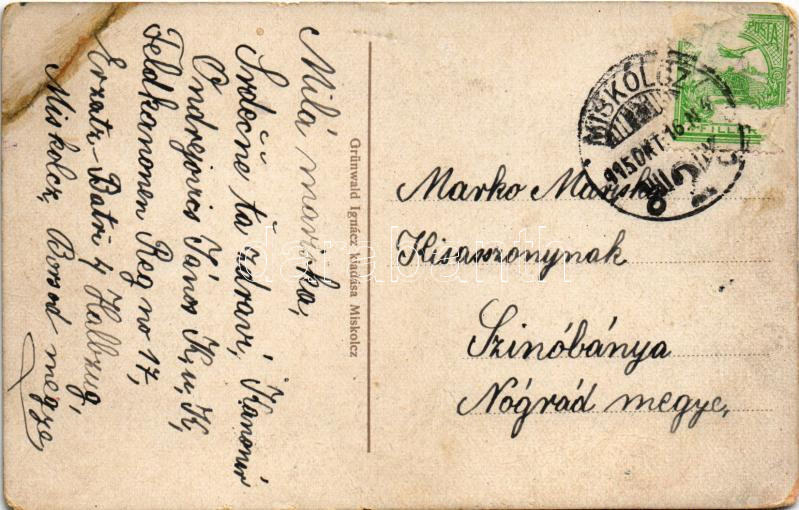 Milá mariska,
Srdečne ťa zdraví, Kanonir
Ondrejovics János K, u, K,
Feldkanonen Reg no 17,
Erzatz-Batr 4 Halbzug,
Miskolcz Borsod megye,
Grünwald Ignácz kiadása Miskolcz
POSTA
FILLÉR
MISKOLCZ
915 OKT. 16. N 4
Marko Mariska
Kisasszonynak
Szinóbánya
Nógrád megye,
darabanth